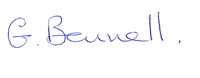 G. Bennell.